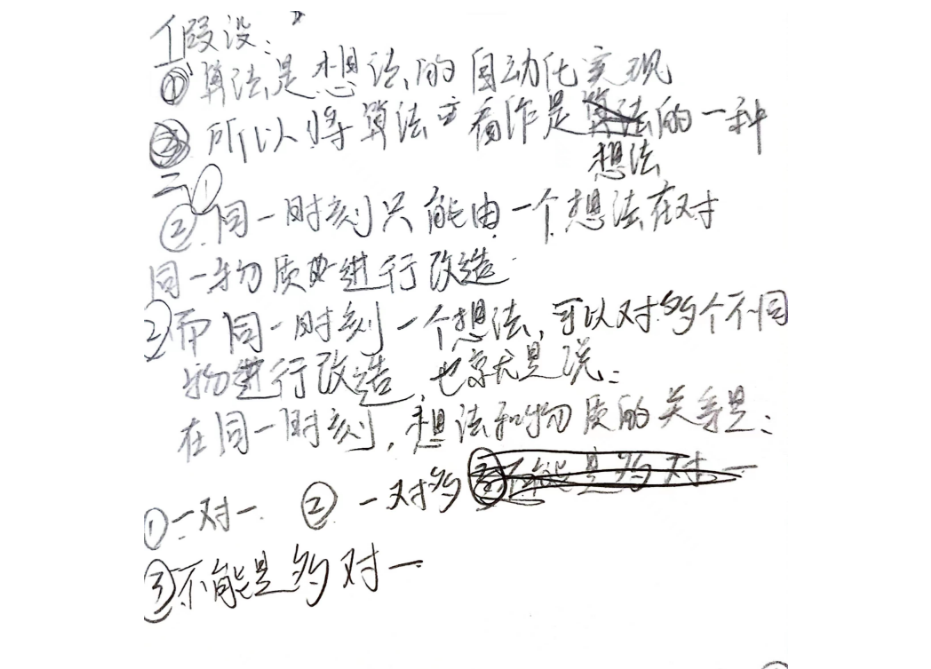 假设：
①算法是想法的自动化实现
所以将算法看作是的一种
想法
二、①
②同一时刻只能由一个想法在对
同一物质进行改造
②而同一时刻一个想法，可以对多个不同
物进行改造，也就是说：
在同一时刻，想法和物质的关系是：
①一对一 ②一对多
③不能是多对一